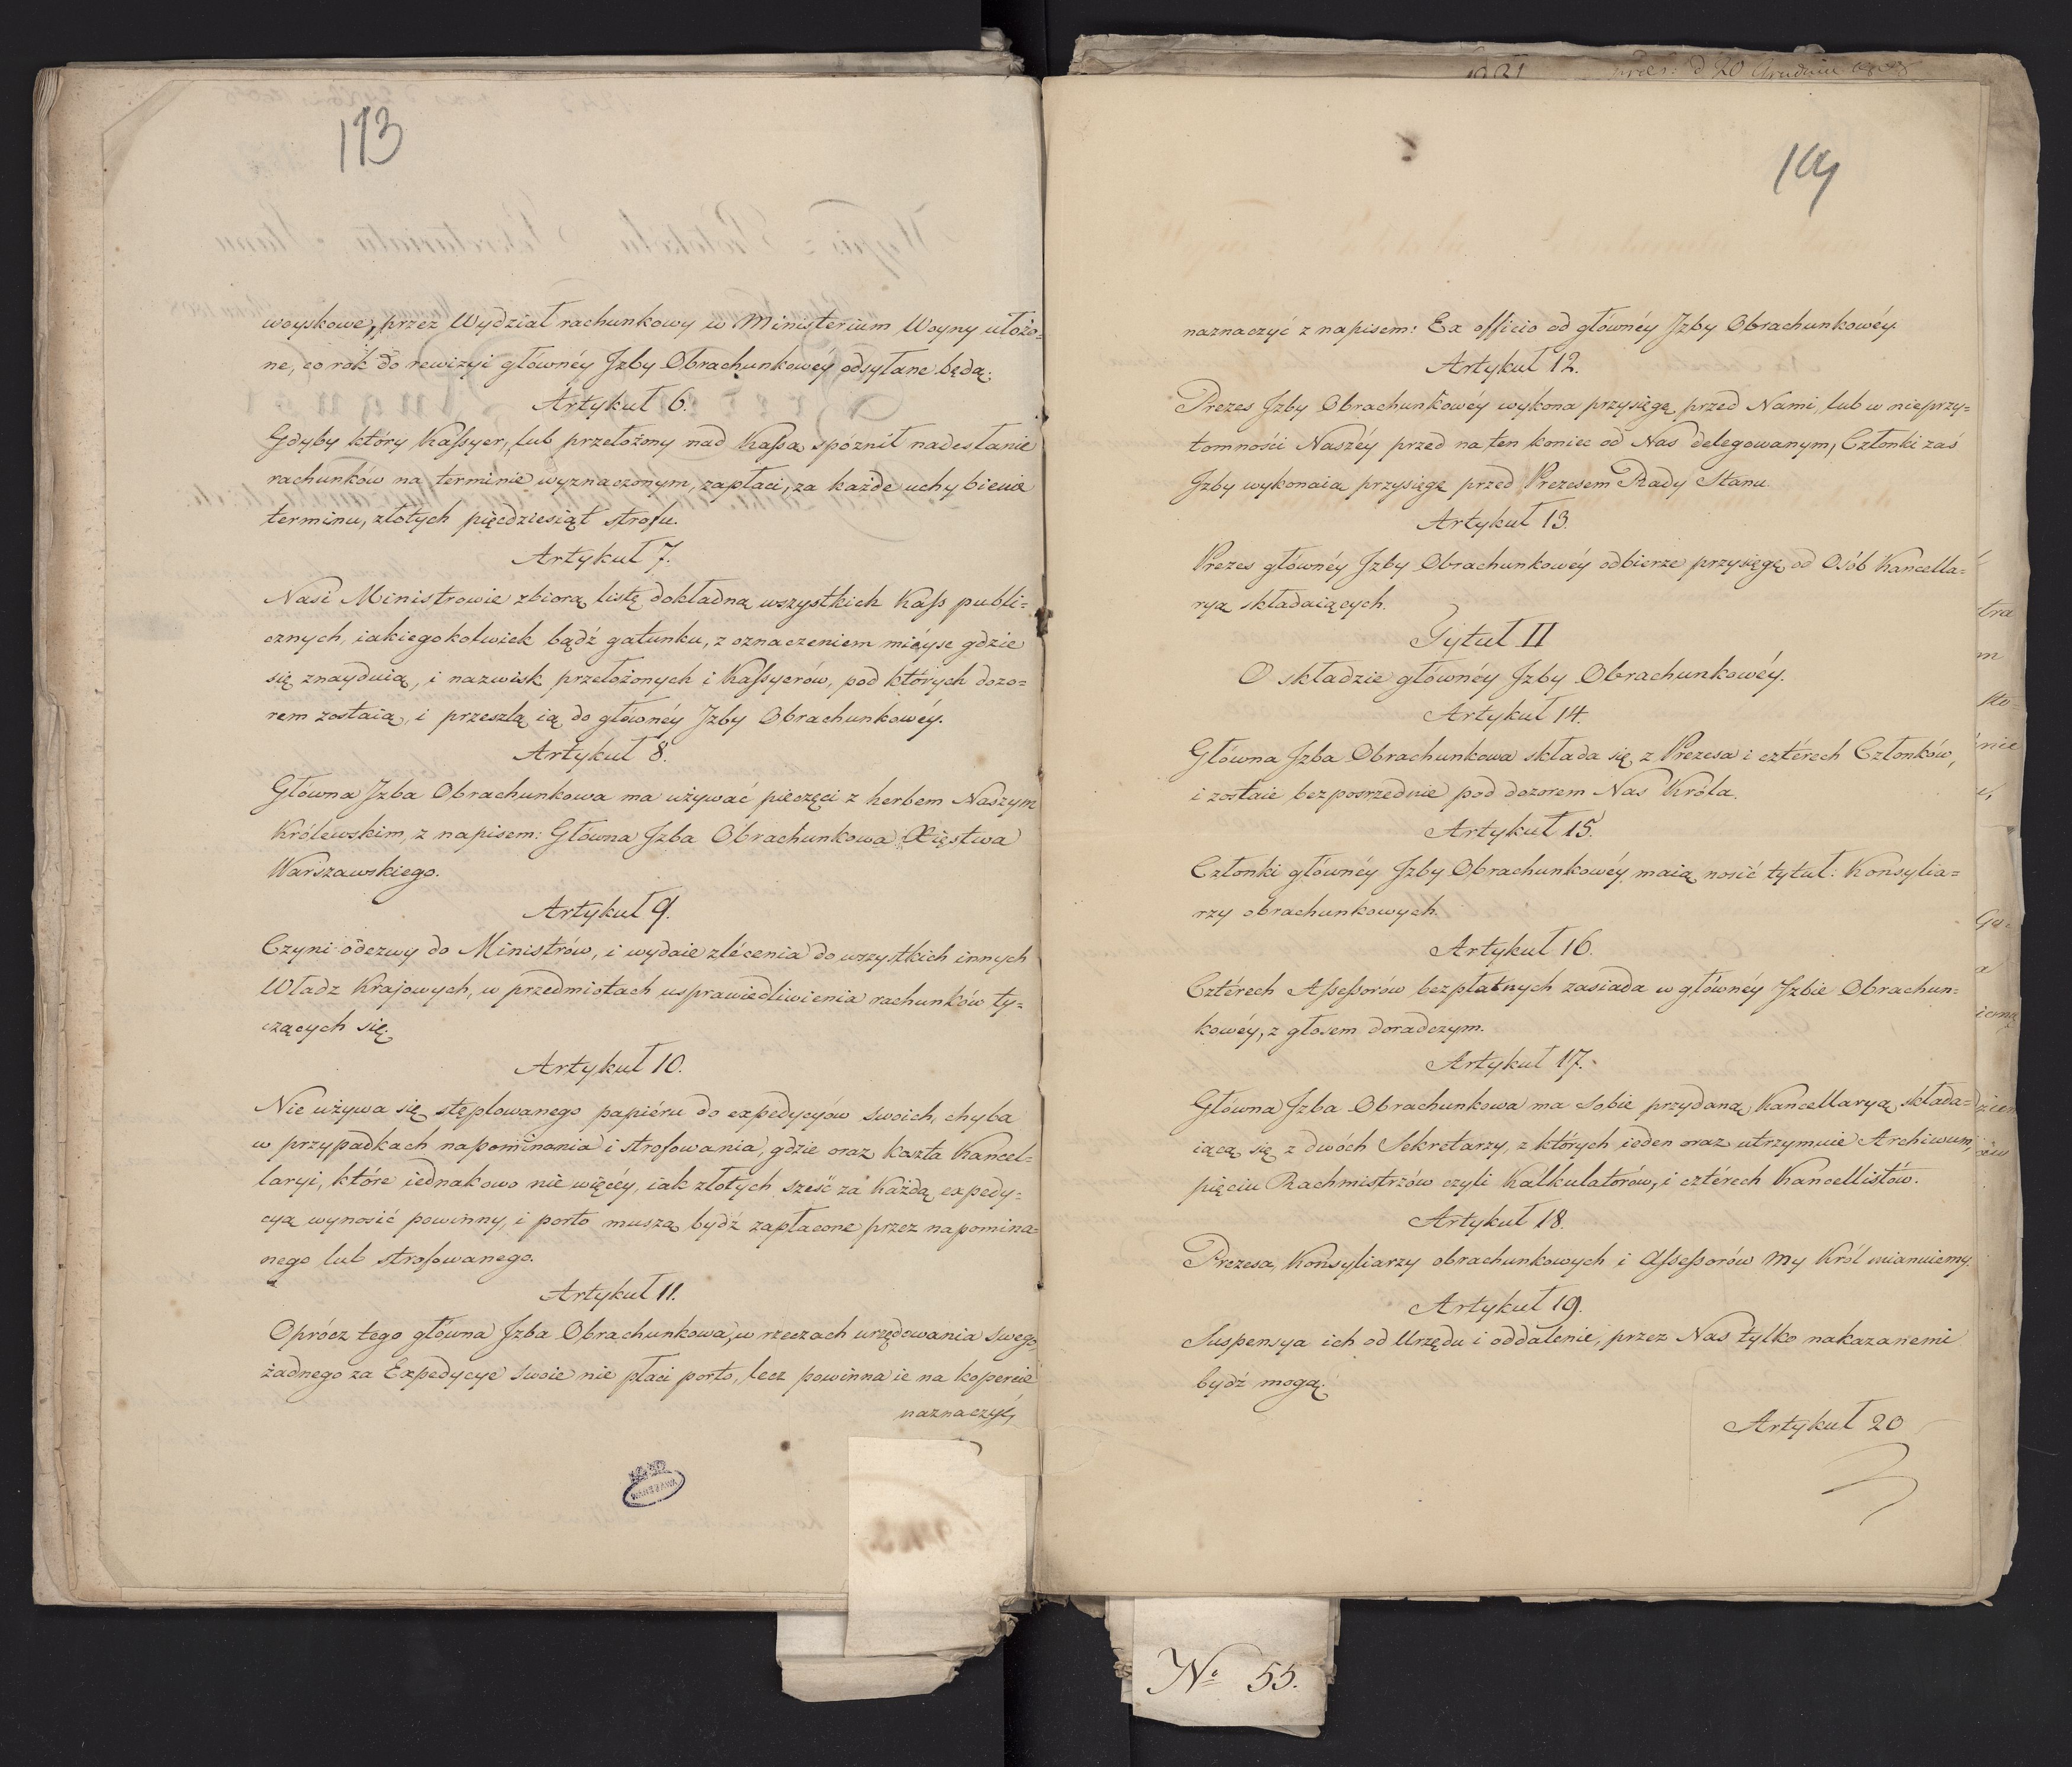 113
woyskowe, przez Wydział rachunkowy w Ministerium Woyny ułożo=
ne, co rok do rewizyi głównéy Jzby Obrachunkowéy odsyłane będą.
Artykuł 6.
Gdyby który Kassyer, lub przełożony nad Kassą spóźnił nadesłanie
rachunków na terminie wyznaczonym, zapłaci, za każde uchybienie
terminu, złotych pięćdziesiąt strofu.
Artykuł 7.
Nasi Ministrowie zbiorą listę dokładną wszystkich Kass publi=
cznych, iakiegokolwiek bądź gatunku, z oznaczeniem mieysc gdzie
się znayduią, i nazwisk przełożonych i Kassyerów, pod których dozo=
rem zostaią, i przeszlą ią do głównéy Jzby Obrachunkowéy.
Artykuł 8.
Główna Jzba Obrachunkowa ma używać pieczęci z herbem Naszym
Królewskim, z napisem: Główna Jzba Obrachunkowa Xięstwa
Warszawskiego.
Artykuł 9.
Czyni odezwy do Ministrów, i wydaie zlécenia do wszystkich innych
Władz Krajowych, w przedmiotach usprawiedliwienia rachunków ty=
czących się.
Artykuł 10.
Nie używa się stęplowanego papiéru do expedycyów swoich, chyba
w przypadkach napominania i strofowania, gdzie oraz koszta Kancel=
laryi, które iednakowo nie więcéy, iak złotych sześć za każdą expedy=
cyą wynosić powinny, i porto muszą bydź zapłacone przez napomina=
nego lub strofowanego.
Artykuł 11.
Oprócz tego główna Jzba Obrachunkowa, w rzeczach urzędowania swego,
żadnego za Expedycye swoie nie płaci porto, lecz powinna ie na kopercie
naznaczyć
WARSZAWA
Grudnia
114
naznaczyć z napisem: Ex officio od głównéy Jzby Obrachunkowéy.
Artykuł 12.
Prezes Jzby Obrachunkowéy wykona przysięgę przed Nami, lub w nieprzy=
tomności Naszéy przed na ten koniec od Nas delegowanym, Członki zaś
Jzby wykonaią przysięgę przed Prezesem Rady Stanu.
Artykuł 13.
Prezes głównéy Jzby Obrachunkowéy odbierze przysięgę od Osób Kancella=
ryą składaiących.
Tytuł II
O składzie głównéy Jzby Obrachunkowéy.
Artykuł 14.
Główna Jzba Obrachunkowa składa się z Prezesa i cztérech Członków,
i zostaie bezpośrzednie pod dozorem Nas Króla.
Artykuł 15.
Członki głównéy Jzby Obrachunkowéy maią nosić tytuł: Konsylia=
rzy obrachunkowych.
Artykuł 16.
Cztérech Assessorów bezpłatnych zasiada w głównéy Jzbie Obrachun=
kowéy, z głosem doradczym.
Artykuł 17.
Główna Jzba Obrachunkowa ma sobie przydaną Kancellaryą składa=
iącą się z dwóch Sekretarzy, z których ieden oraz utrzymuie Archiwum,
pięciu Rachmistrzów czyli Kalkulatorów, i cztérech Kancellistów.
Artykuł 18.
Prezesa, Konsyliarzy obrachunkowych i Assessorów My Król mianuiemy.
Artykuł 19.
Suspensya ich od Urzędu i oddalenie, przez Nas tylko nakazanemi
bydź mogą.
Artykuł 20
No 55.